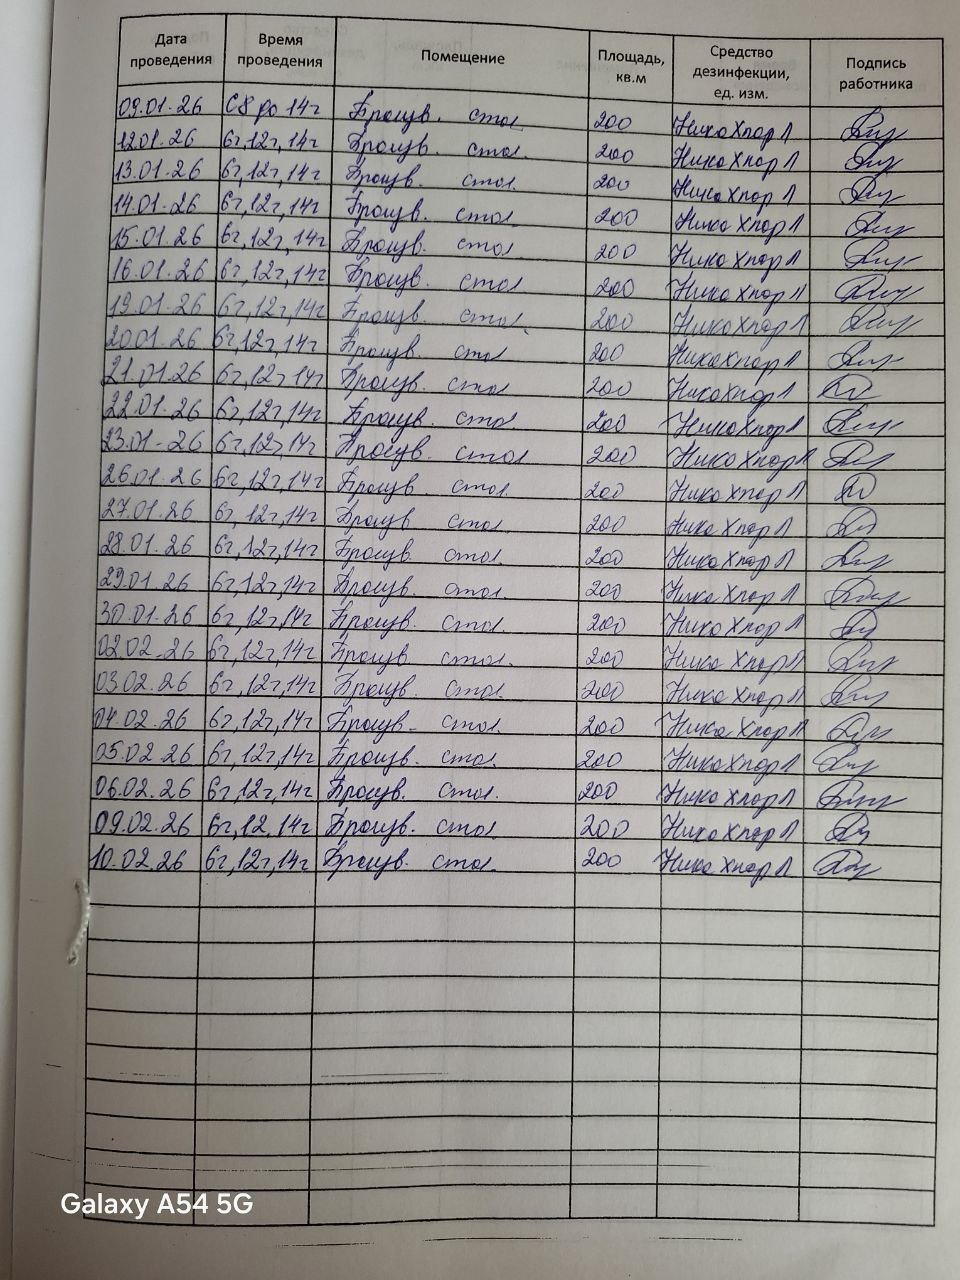 Дата проведения | Время проведения | Помещение | Площадь, кв.м | Средство дезинфекции, ед. изм. | Подпись работника
09.01.26 | С 8 до 14ч | Произв. стол | 200 | НикаХлор Л
12.01.26 | 6ч,12ч,14ч | Произв. стол. | 200 | НикаХлор Л
13.01.26 | 6ч,12ч,14ч | Произв. стол. | 200 | НикаХлор Л
14.01.26 | 6ч,12ч,14ч | Произв. стол | 200 | НикаХлор Л
15.01.26 | 6ч,12ч,14ч | Произв. стол. | 200 | НикаХлор Л
16.01.26 | 6ч,12ч,14ч | Произв. стол | 200 | НикаХлор Л
19.01.26 | 6ч,12ч,14ч | Произв. стол. | 200 | НикаХлор Л
20.01.26 | 6ч,12ч,14ч | Произв. стол | 200 | НикаХлор Л
21.01.26 | 6ч,12ч,14ч | Произв. стол | 200 | НикаХлор Л
22.01.26 | 6ч,12ч,14ч | Произв. стол | 200 | НикаХлор Л
23.01.26 | 6ч,12ч,14ч | Произв. стол | 200 | НикаХлор Л
26.01.26 | 6ч,12ч,14ч | Произв. стол. | 200 | НикаХлор Л
27.01.26 | 6ч,12ч,14ч | Произв. стол. | 200 | НикаХлор Л
28.01.26 | 6ч,12ч,14ч | Произв. стол. | 200 | НикаХлор Л
29.01.26 | 6ч,12ч,14ч | Произв. стол. | 200 | НикаХлор Л
30.01.26 | 6ч,12ч,14ч | Произв. стол. | 200 | НикаХлор Л
02.02.26 | 6ч,12ч,14ч | Произв. стол. | 200 | НикаХлор Л
03.02.26 | 6ч,12ч,14ч | Произв. стол. | 200 | НикаХлор Л
04.02.26 | 6ч,12ч,14ч | Произв. стол. | 200 | НикаХлор Л
05.02.26 | 6ч,12ч,14ч | Произв. стол. | 200 | НикаХлор Л
06.02.26 | 6ч,12ч,14ч | Произв. стол. | 200 | НикаХлор Л
09.02.26 | 6ч,12,14ч | Произв. стол. | 200 | НикаХлор Л
10.02.26 | 6ч,12ч,14ч | Произв. стол. | 200 | НикаХлор Л
Galaxy A54 5G